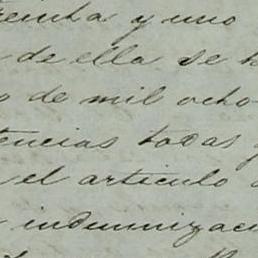 treinta y uno
de ella se h
o de mil ocho-
tencias todas y
el articulo d
indemnizaci